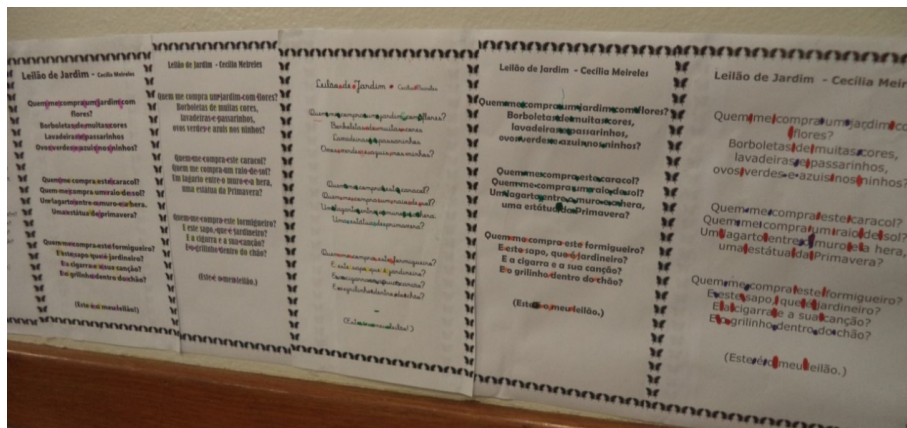 Leilão de Jardim - Cecília Meireles
Quem me compra um jardim com
flores?
Borboletas de muitas cores
Lavadeiras e passarinhos
Ovos verdes e azuis nos ninhos?
Quem me compra este caracol?
Quem me compra um raio de sol?
Um lagarto entre o muro e a hera,
Uma estátua da primavera?
Quem me compra este formigueiro?
E este sapo, que é jardineiro?
E a cigarra e a sua canção?
E o grilinho dentro do chão?
(Este é o meu leilão!)
Leilão de Jardim - Cecília Meireles
Quem me compra um jardim com flores?
Borboletas de muitas cores,
lavadeiras e passarinhos,
ovos verdes e azuis nos ninhos?
Quem me compra este caracol?
Quem me compra um raio de sol?
Um lagarto entre o muro e a hera,
uma estátua da Primavera?
Quem me compra este formigueiro?
E este sapo, que é jardineiro?
E a cigarra e a sua canção?
E o grilinho dentro do chão?
(Este é o meu leilão.)
Leilão de Jardim - Cecília Meireles
Quem me compra um jardim com flores?
Borboletas de muitas cores
Lavadeiras e passarinhos
Ovos verdes e azuis nos ninhos?
Quem me compra este caracol?
Quem me compra um raio de sol?
Um lagarto entre o muro e a hera
Uma estátua da primavera?
Quem me compra este formigueiro?
E este sapo, que é jardineiro?
E a cigarra e a sua canção?
E o grilinho dentro do chão?
(Este é o meu leilão!)
Leilão de Jardim - Cecília Meireles
Quem me compra um jardim com flores?
Borboletas de muitas cores,
lavadeiras e passarinhos,
ovos verdes e azuis nos ninhos?
Quem me compra este caracol?
Quem me compra um raio de sol?
Um lagarto entre o muro e a hera,
uma estátua da Primavera?
Quem me compra este formigueiro?
E este sapo, que é jardineiro?
E a cigarra e a sua canção?
E o grilinho dentro do chão?
(Este é o meu leilão.)
Leilão de Jardim - Cecília Meir
Quem me compra um jardim co
flores?
Borboletas de muitas cores,
lavadeiras e passarinhos,
ovos verdes e azuis nos ninhos?
Quem me compra este caracol?
Quem me compra um raio de sol?
Um lagarto entre o muro e a hera,
uma estátua da Primavera?
Quem me compra este formigueiro?
E este sapo, que é jardineiro?
E a cigarra e a sua canção?
E o grilinho dentro do chão?
(Este é o meu leilão.)